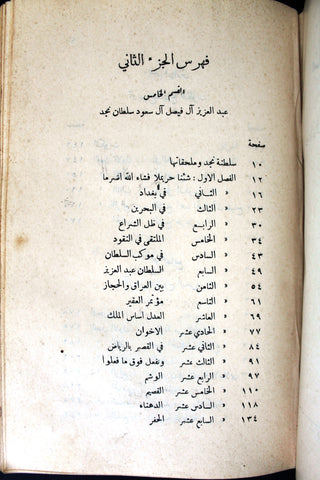 فهرس الجزء الثاني
القسم الخامس
عبد العزيز آل فيصل آل سعود سلطان نجد
صفحة
١٠ سلطنة نجد وملحقاتها
١٢ الفصل الاول : شئنا حريملا فشاء الله القدرما
١٦ » الثاني في بغداد
٢٣ » الثالث في البحرين
٣٠ » الرابع في ظل الشراع
٣٤ » الخامس الملتقى في النفود
٤٣ » السادس في موكب السلطان
٤٩ » السابع السلطان عبد العزيز
٥٤ » الثامن بين العراق والحجاز
٦١ » التاسع مؤتمر العقير
٦٩ » العاشر العدل أساس الملك
٧٧ » الحادي عشر الاخوان
٨٤ » الثاني عشر في القصر بالرياض
٩١ » الثالث عشر ونفعل فوق ما فعلوا
٩٧ » الرابع عشر الوشم
١١٠ » الخامس عشر القصيم
١١٨ » السادس عشر الدهناء
١٣٤ » السابع عشر الحفر